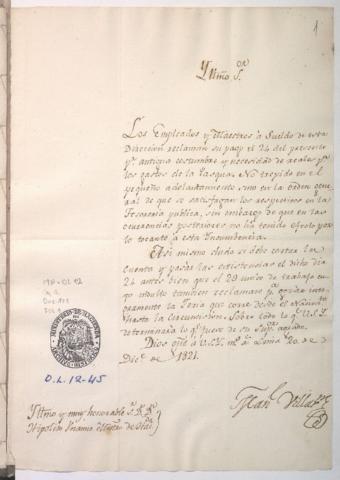 1
Yltmo S.or
Los Empleados y Maestros à Sueldo de esta
Direccion reclaman su pago el 24 del presente
p.r antigua costumbre y necesidad de reales p.a
los gastos de la Pasqua. No trepido en el
pequeño adelantamiento, sino en la órden gene-
ral de que se satisfagan los respectivos en la
Tesoreria publica, sin embargo de que en las
ocurrencias posteriores no ha tenido efecto por
lo tocante à esta Intendencia.
Asi mismo dudo si debo cortar la
Cuenta y pasar las existencias el dicho dia
24 antes bien que el 29 unico de trabajo
tambien reclaman p.a
la Feria que corre desde el Nacim.to
hasta la Circuncision. Sobre todo lo q.e V.S.Y.
determinarà lo q.e fuere de su Sup.or agrado.
Dios gue à V.S.Y. m.s a.s Lima 20 de
Dic.e de 1821.
Man.l Villa
Yltmo y muy honorable S.or D.D.n
Hipolito Unanue Mtro de Haz.da
MINISTERIO DE HACIENDA
ARCHIVO HISTORICO
O.L. 12-45